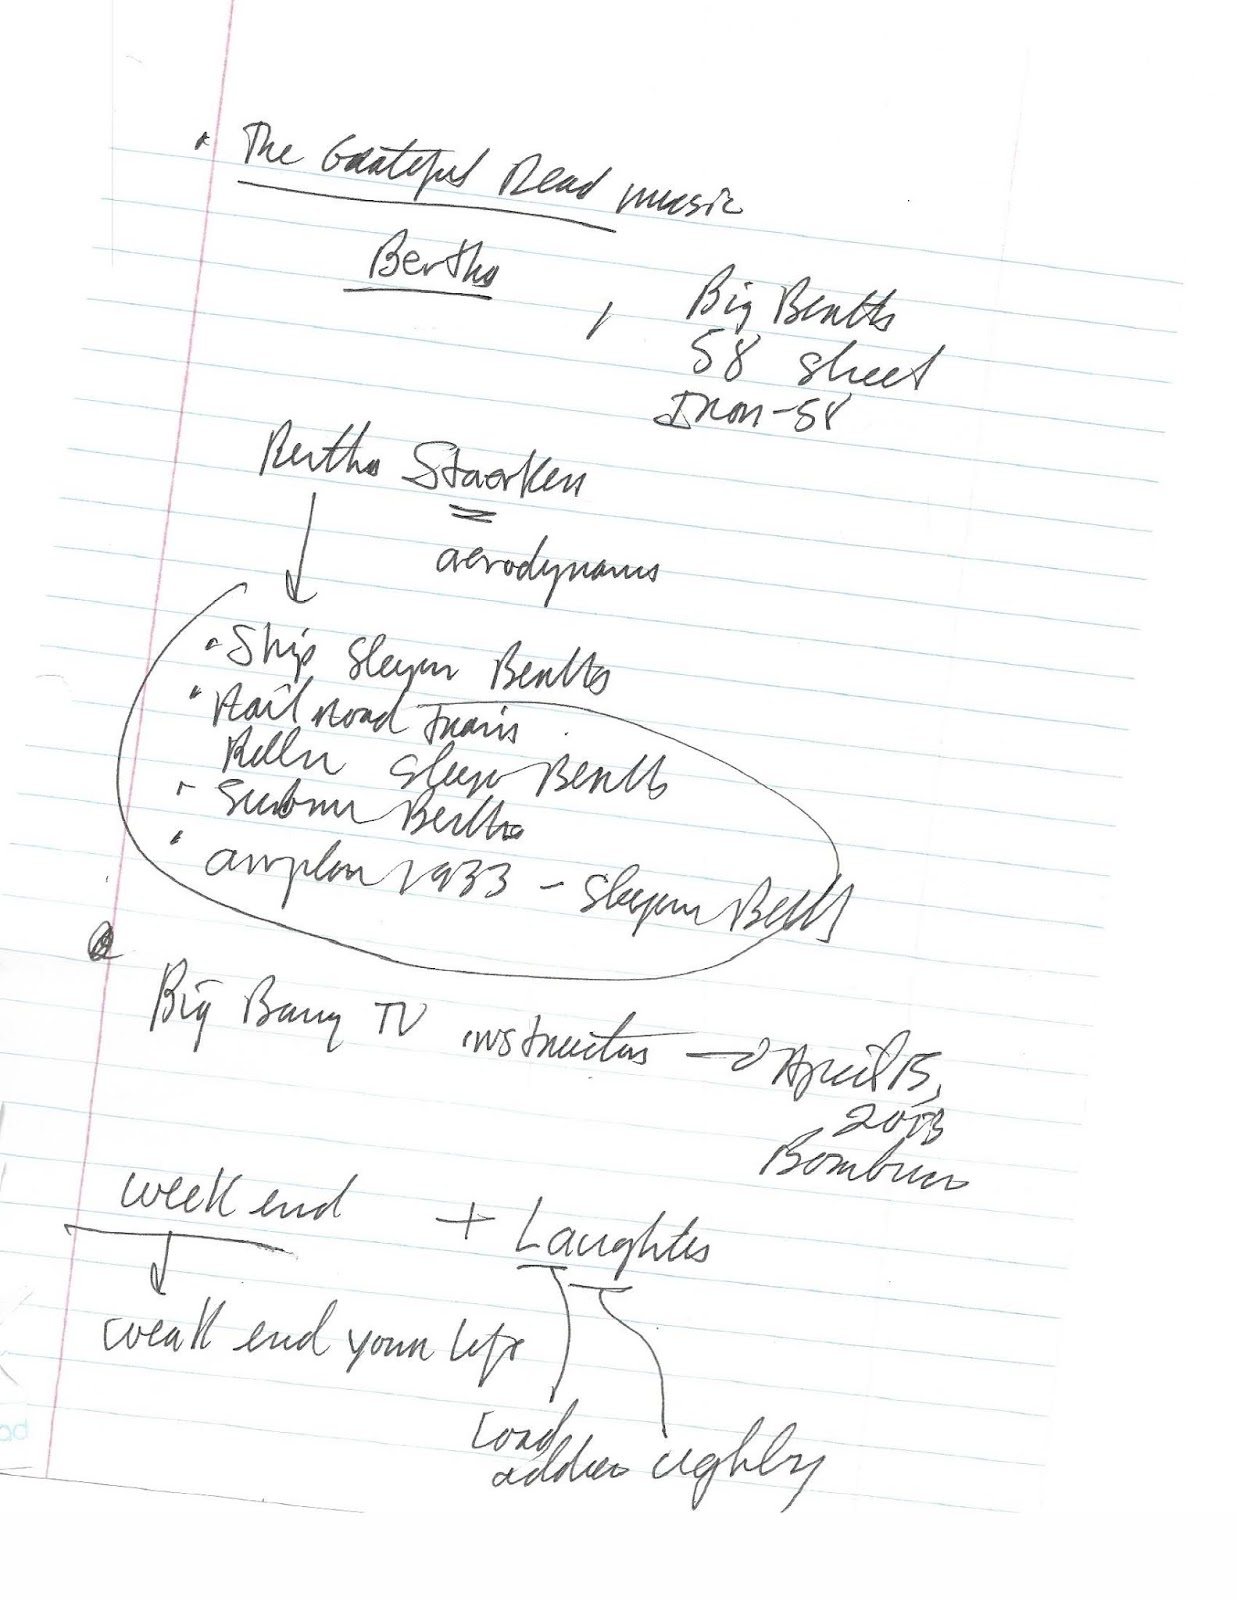 The Grateful Dead music
Bertha
, Big Berths
58 sheet
Iron-58
Bertha Staerken
aerodynams
Ship Sleepn Berths
Railroad Trains
Sleepn Berths
Bertha
airplan 1933 - Sleepn Berths
Big Bang TV instructors → April 15,
2013
week end + Laughter
weak end your life
Load
address ughly